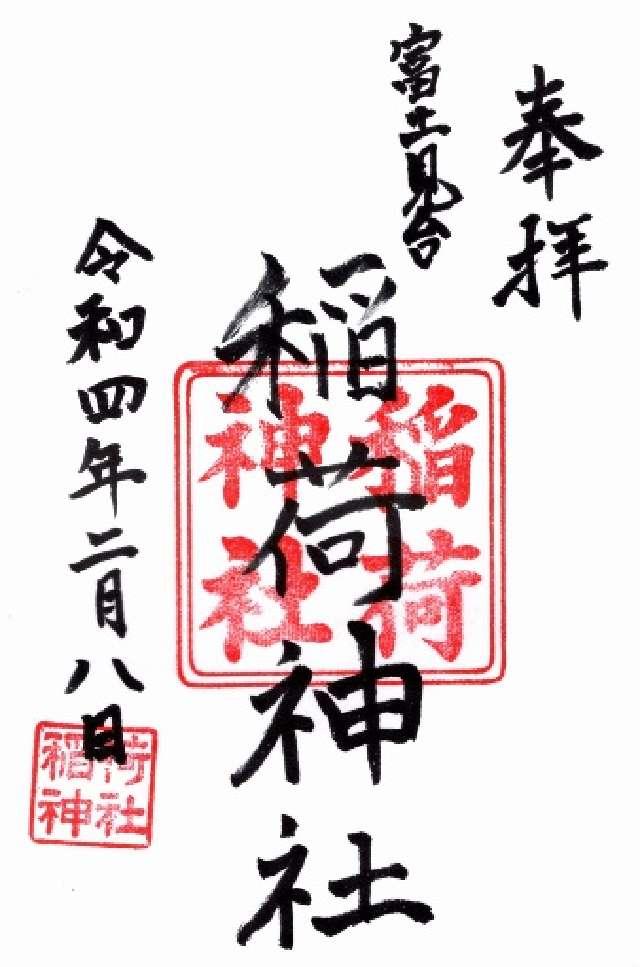 奉拝
富士見台
稲荷神社
稲荷
神社
令和四年二月八日
稲荷
神社